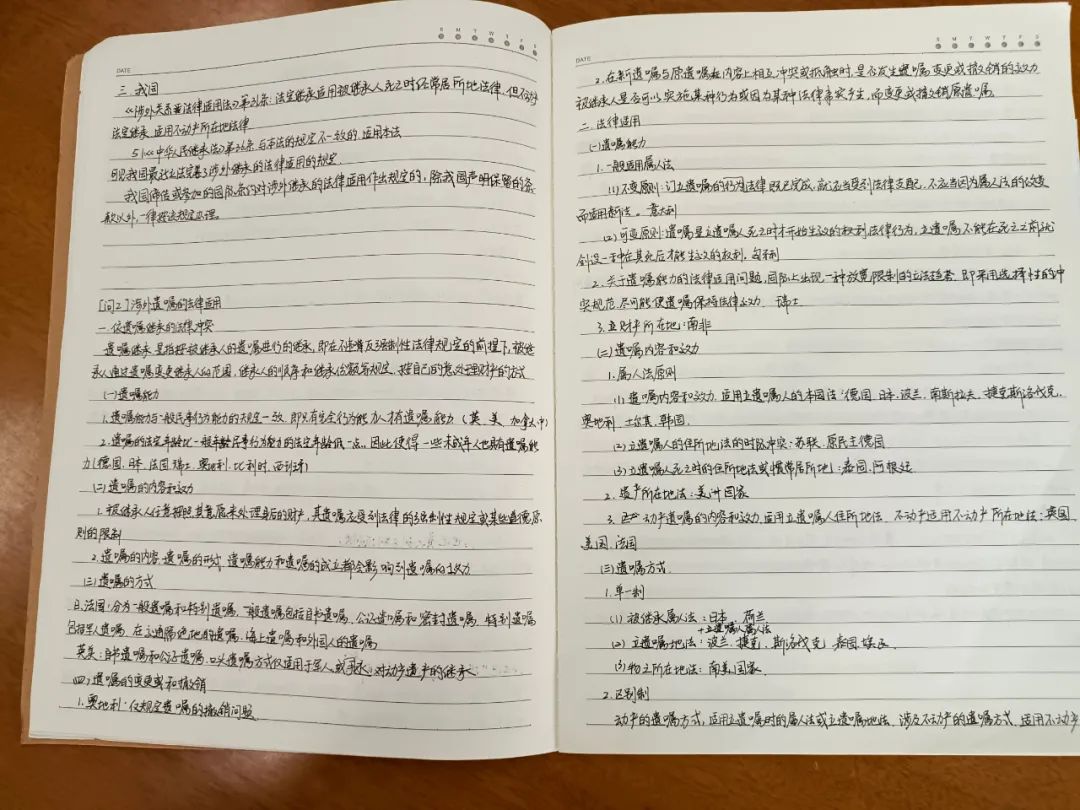 S M T W T F S
DATE
三. 我国
《涉外关系法律适用法》第31条:法定继承适用被继承人死亡时经常居所地法律,但不动产
法定继承,适用不动产所在地法律
51《中华人民继承法》第36条与本法的规定不一致的,适用本法
可见我国最近立法完善了涉外继承的法律适用的规定.
我国缔结或参加的国际条约对涉外继承的法律适用作出规定的,除我国声明保留的条
款以外,一律按该规定办理。
[问2]涉外遗嘱的法律适用
一.依遗嘱继承的法律冲突
遗嘱继承是指按被继承人的遗嘱进行的继承,即在不违背反强制性法律规定的前提下,被继
承人通过遗嘱变更继承人的范围,继承人的顺序和继承份额等规定,按自己的意处理财产的方式
(一)遗嘱能力
1.遗嘱能力与一般民事行为能力的规定一致,即只有完全行为能力人才有遗嘱能力(英、美、加拿大、中)
2.遗嘱的法定年龄比一般民事行为能力的法定年龄低一点,因此使得一些未成年人也具有遗嘱能
力(德国、日本、法国、瑞士、奥地利、比利时、西班牙)
(二)遗嘱的内容和效力
1.被继承人任意按照其意愿来处理身后的财产,其遗嘱应受到法律的强制性规定或某些道德原
则的限制
2.遗嘱的内容、遗嘱的形式,遗嘱能力和遗嘱的成立都会影响到遗嘱的效力
(三)遗嘱的方式
日.法国:分为一般遗嘱和特别遗嘱,一般遗嘱包括自书遗嘱,公证遗嘱和密封遗嘱,特别遗嘱
包括军人遗嘱,在交通隔绝地的遗嘱,海上遗嘱和外国人的遗嘱
英美:自书遗嘱和公证遗嘱,口头遗嘱方式仅适用于军人或 对动产遗产的继承
(四)遗嘱的变更或和撤销
1.奥地利:仅规定遗嘱的撤销问题
S M T W T F S
DATE
2.在新遗嘱与原遗嘱在内容上相互冲突或抵触时,是否发生遗嘱变更或撤销的效力
被继承人是否可以实施某种行为或因为某种法律事实产生,而变更或撤销原遗嘱。
二.法律适用
(一)遗嘱能力
1.一般适用属人法
(1)不变原则:订立遗嘱的行为法律既已完成,就应当受到法律支配,不应当因为属人法的改变
而适用新法。意大利
(2)可变原则:遗嘱是立遗嘱人死亡时才开始生效的权利法律行为,立遗嘱人不能在死亡之前就
创设一种在其死后才能生效的权利,匈牙利
2.关于遗嘱能力的法律适用问题,国际上出现一种放宽限制的立法趋势,即采用选择性的冲
突规范,尽可能使遗嘱保持法律效力 瑞士
3.立财产所在地:南非
(二)遗嘱内容和效力
1.属人法原则
(1)遗嘱内容和效力,适用立遗嘱人的本国法:德国、日本、波兰、南斯拉夫、捷克斯洛伐克、
奥地利、土耳其、韩国.
(2)立遗嘱人的住所地法的时际冲突:苏联、原民主德国
(3)立遗嘱人死亡时的住所地法或惯常居所地:泰国、阿根廷
2.遗产所在地法:美洲国家
3. 动产遗嘱的内容和效力,适用立遗嘱人住所地法,不动产适用不动产所在地法:英国、
美国、法国
(三)遗嘱方式
1.单一制
(1)被继承属人法:日本、荷兰
+立遗嘱人属人法
(2)立遗嘱地法:波兰、捷克、斯洛伐克、泰国、埃及.
(3)物之所在地法:南美国家.
2.区别制
动产的遗嘱方式,适用立遗嘱时的属人法或立遗嘱地法,涉及不动产的遗嘱方式,适用不动产